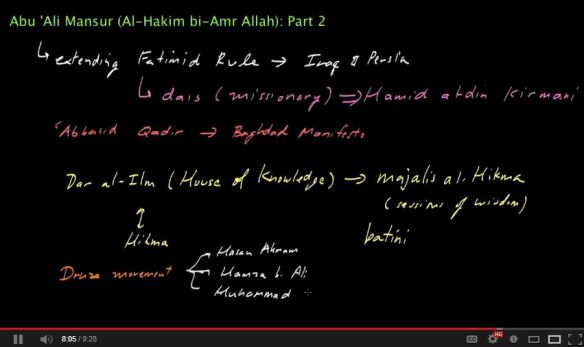 Abu 'Ali Mansur (Al-Hakim bi-Amr Allah): Part 2
extending Fatimid Rule → Iraq & Persia
dais (missionary) ⇒ Hamid al din Kirmani
'Abbasid Qadir → Baghdad Manifesto
Dar al-Ilm (House of Knowledge) → majalis al. Hikma
(sessions of wisdom)
Hikma
batini
Druze movement
Hasan Akram
Hamza b. Ali
Muhammad
8:05 / 9:28
HD